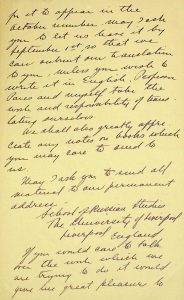 for it to appear in the
October number, may I ask
you to let us have it by
September 1st, so that we
can submit our translation
to you, unless you wish to
write it in English. Professor
Pares and myself take the
work and responsibility of trans-
lating ourselves.
We shall also greatly appre-
ciate any notes on books which
you may care to send to
us.
May I ask you to send all
material to our permanent
address:
School of Russian Studies
The University of Liverpool
Liverpool England
If you would care to talk
over the work which we
are trying to do it would
give me great pleasure to